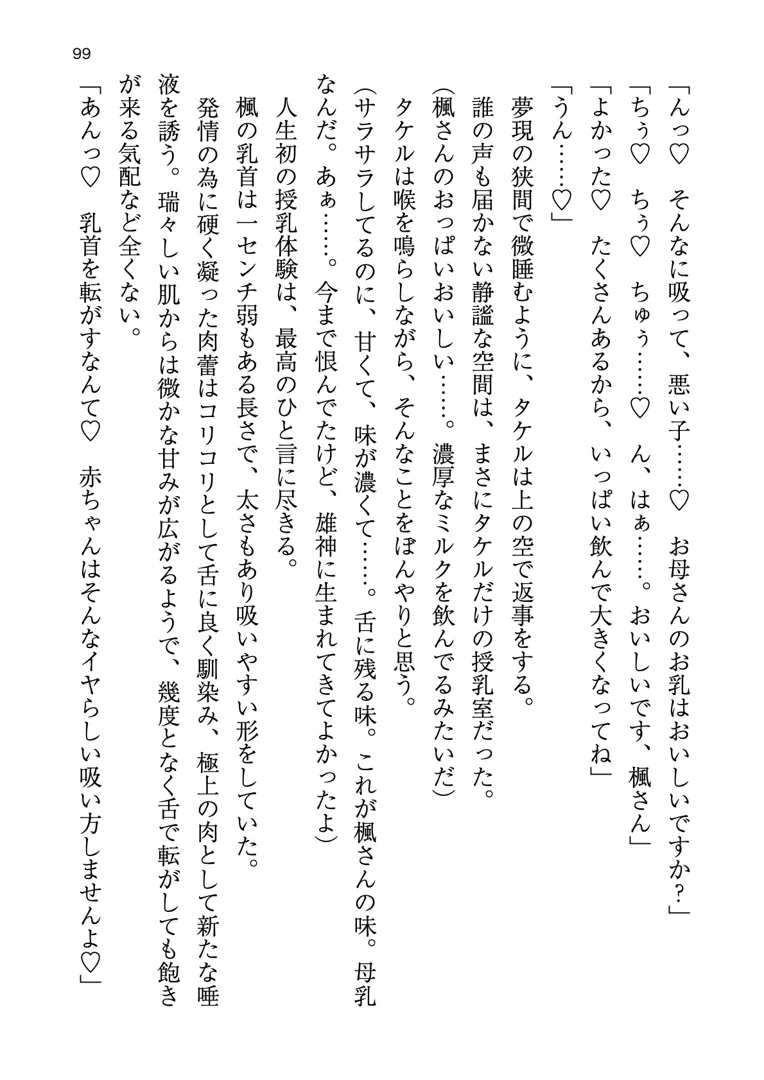 99
「んっ♡　そんなに吸って、悪い子……♡　お母さんのお乳はおいしいですか?」
「ちぅ♡　ちぅ♡　ちゅぅ……♡　ん、はぁ……。おいしいです、楓さん」
「よかった♡　たくさんあるから、いっぱい飲んで大きくなってね」
「うん……♡」
夢現の狭間で微睡むように、タケルは上の空で返事をする。
誰の声も届かない静謐な空間は、まさにタケルだけの授乳室だった。
(楓さんのおっぱいおいしい……。濃厚なミルクを飲んでるみたいだ)
タケルは喉を鳴らしながら、そんなことをぼんやりと思う。
(サラサラしてるのに、甘くて、味が濃くて……。舌に残る味。これが楓さんの味。母乳
なんだ。あぁ……。今まで恨んでたけど、雄神に生まれてきてよかったよ)
人生初の授乳体験は、最高のひと言に尽きる。
楓の乳首は一センチ弱もある長さで、太さもあり吸いやすい形をしていた。
発情の為に硬く凝った肉蕾はコリコリとして舌に良く馴染み、極上の肉として新たな唾
液を誘う。瑞々しい肌からは微かな甘みが広がるようで、幾度となく舌で転がしても飽き
が来る気配など全くない。
「あんっ♡　乳首を転がすなんて♡　赤ちゃんはそんなイヤらしい吸い方しませんよ♡」